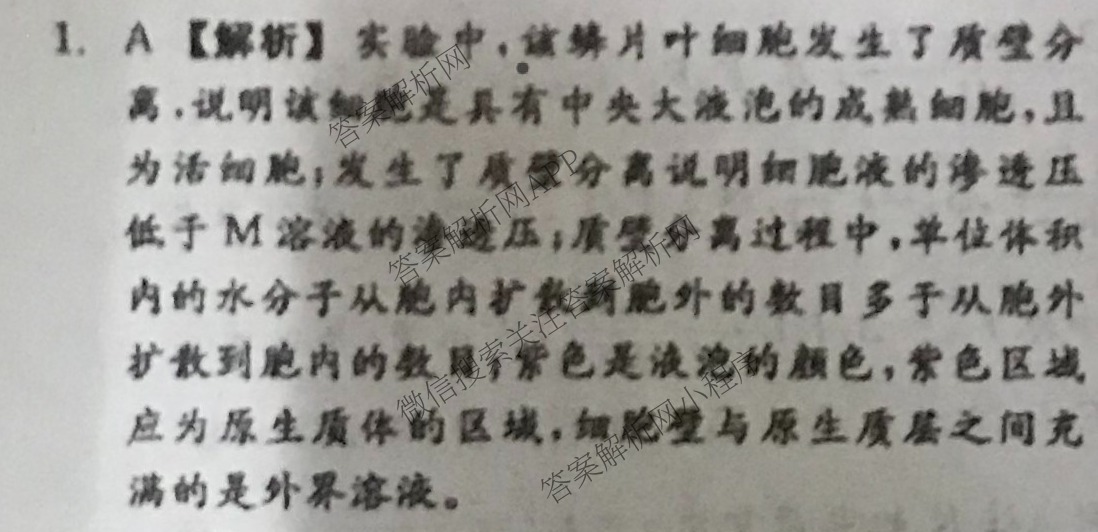 1. A 【解析】 实验中,该鳞片叶细胞发生了质壁分
离,说明该细胞是具有中央大液泡的成熟细胞,且
为活细胞;发生了质壁分离说明细胞液的渗透压
低于 M 溶液的渗透压;质壁分离过程中,单位体积
内的水分子从胞内扩散到胞外的数目多于从胞外
扩散到胞内的数目;紫色是液泡的颜色,紫色区域
应为原生质体的区域,细胞壁与原生质层之间充
满的是外界溶液。
答案解析网
答案解析网APP
微信搜索关注答案解析网
答案解析网小程序